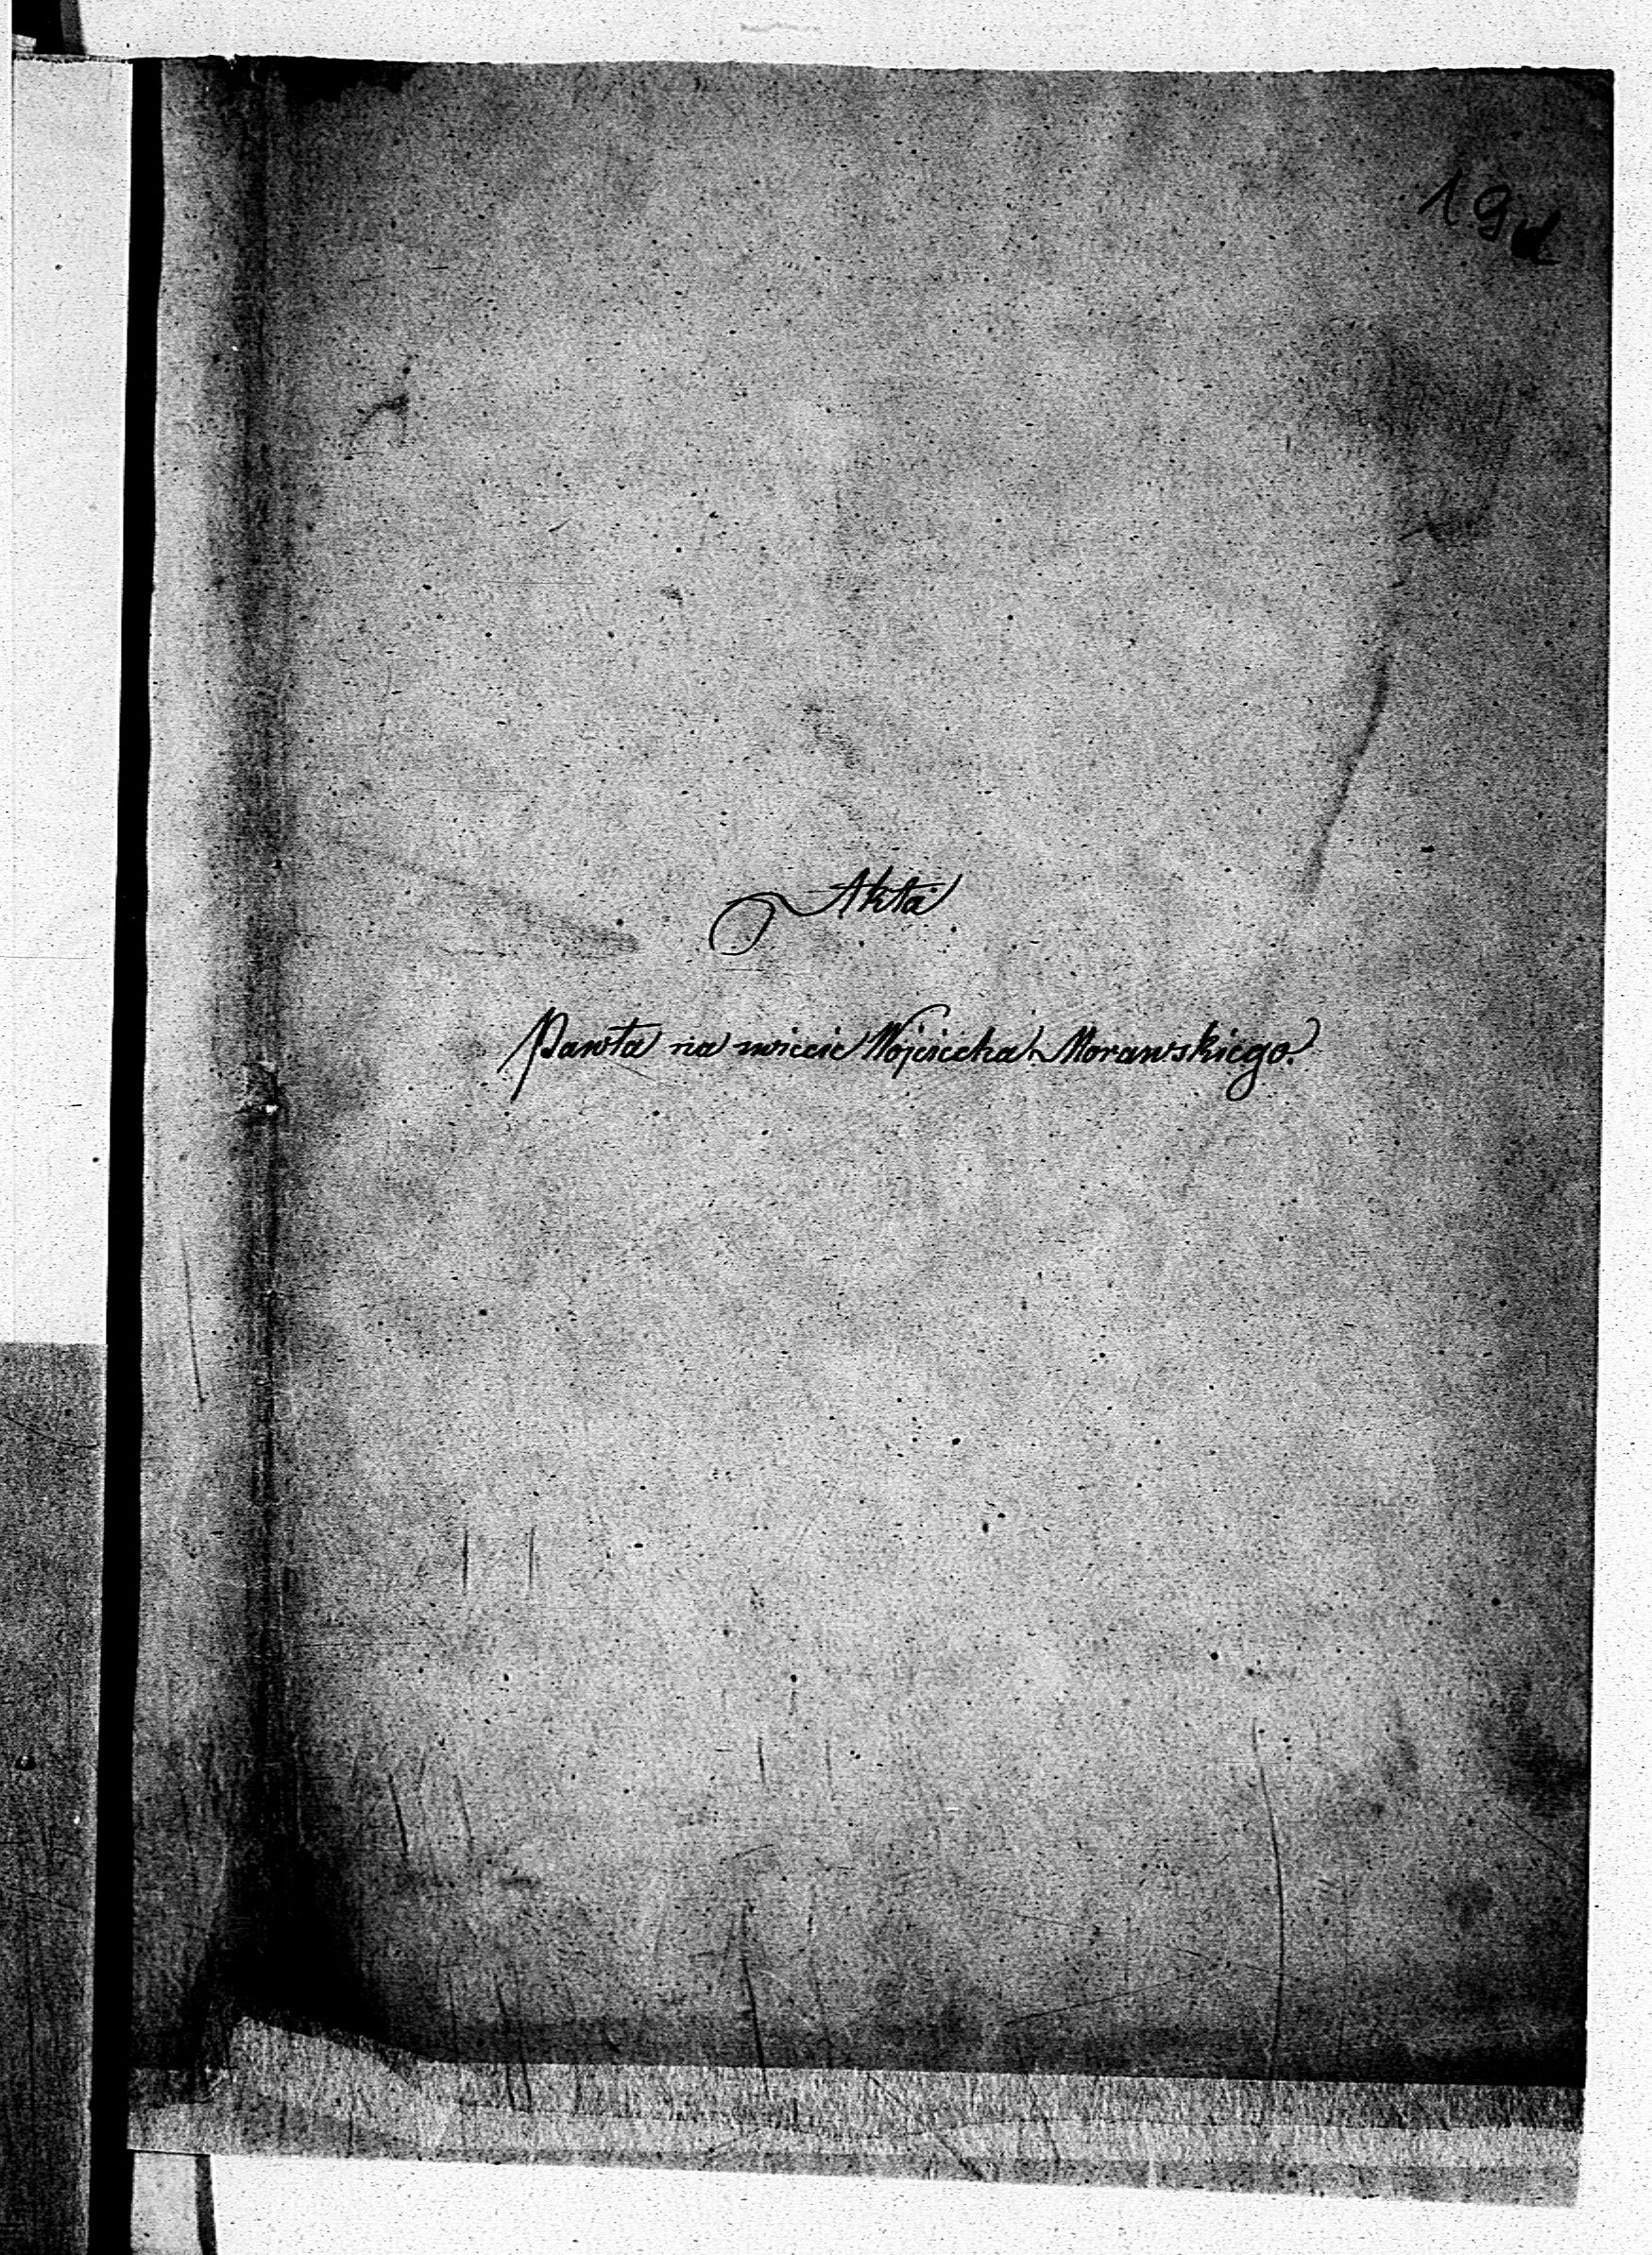 19
Akta
Pawła na świecie Wojciecha Morawskiego.